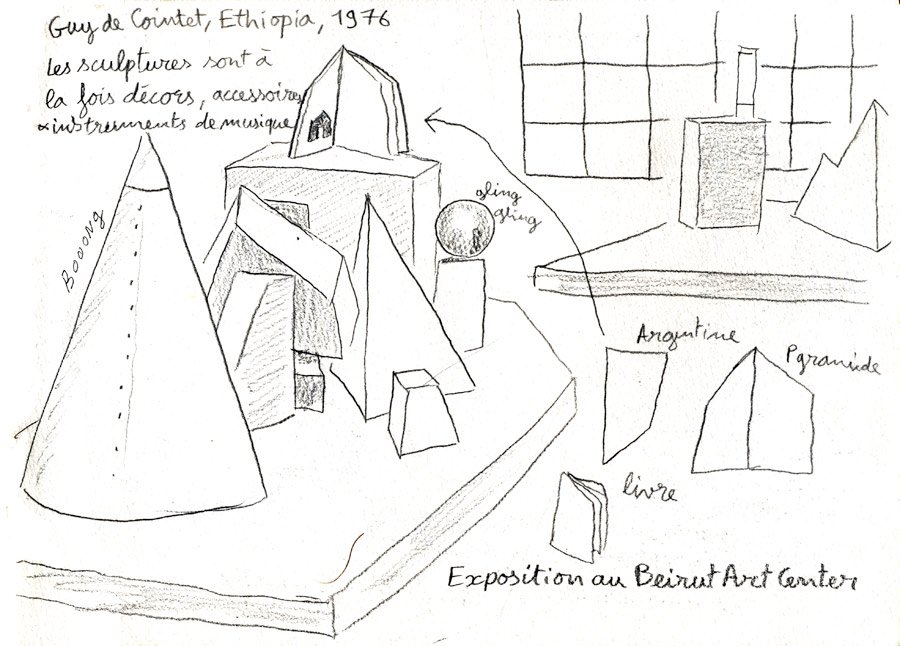 Guy de Cointet, Ethiopia, 1976
Les sculptures sont à
la fois décors, accessoires
& instruments de musique
BOOONG
gling
gling
Argentine
Pyramide
livre
Exposition au Beirut Art Center